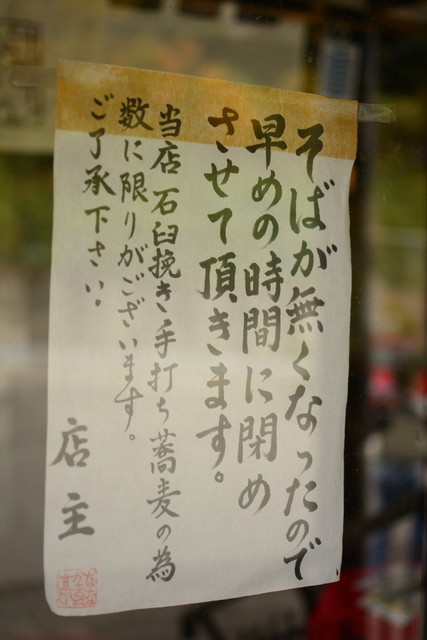 そばが無くなったので
早めの時間に閉め
させて頂きます。
当店石臼挽き手打ち蕎麦の為
数に限りがございます。
ご了承下さい。
店主